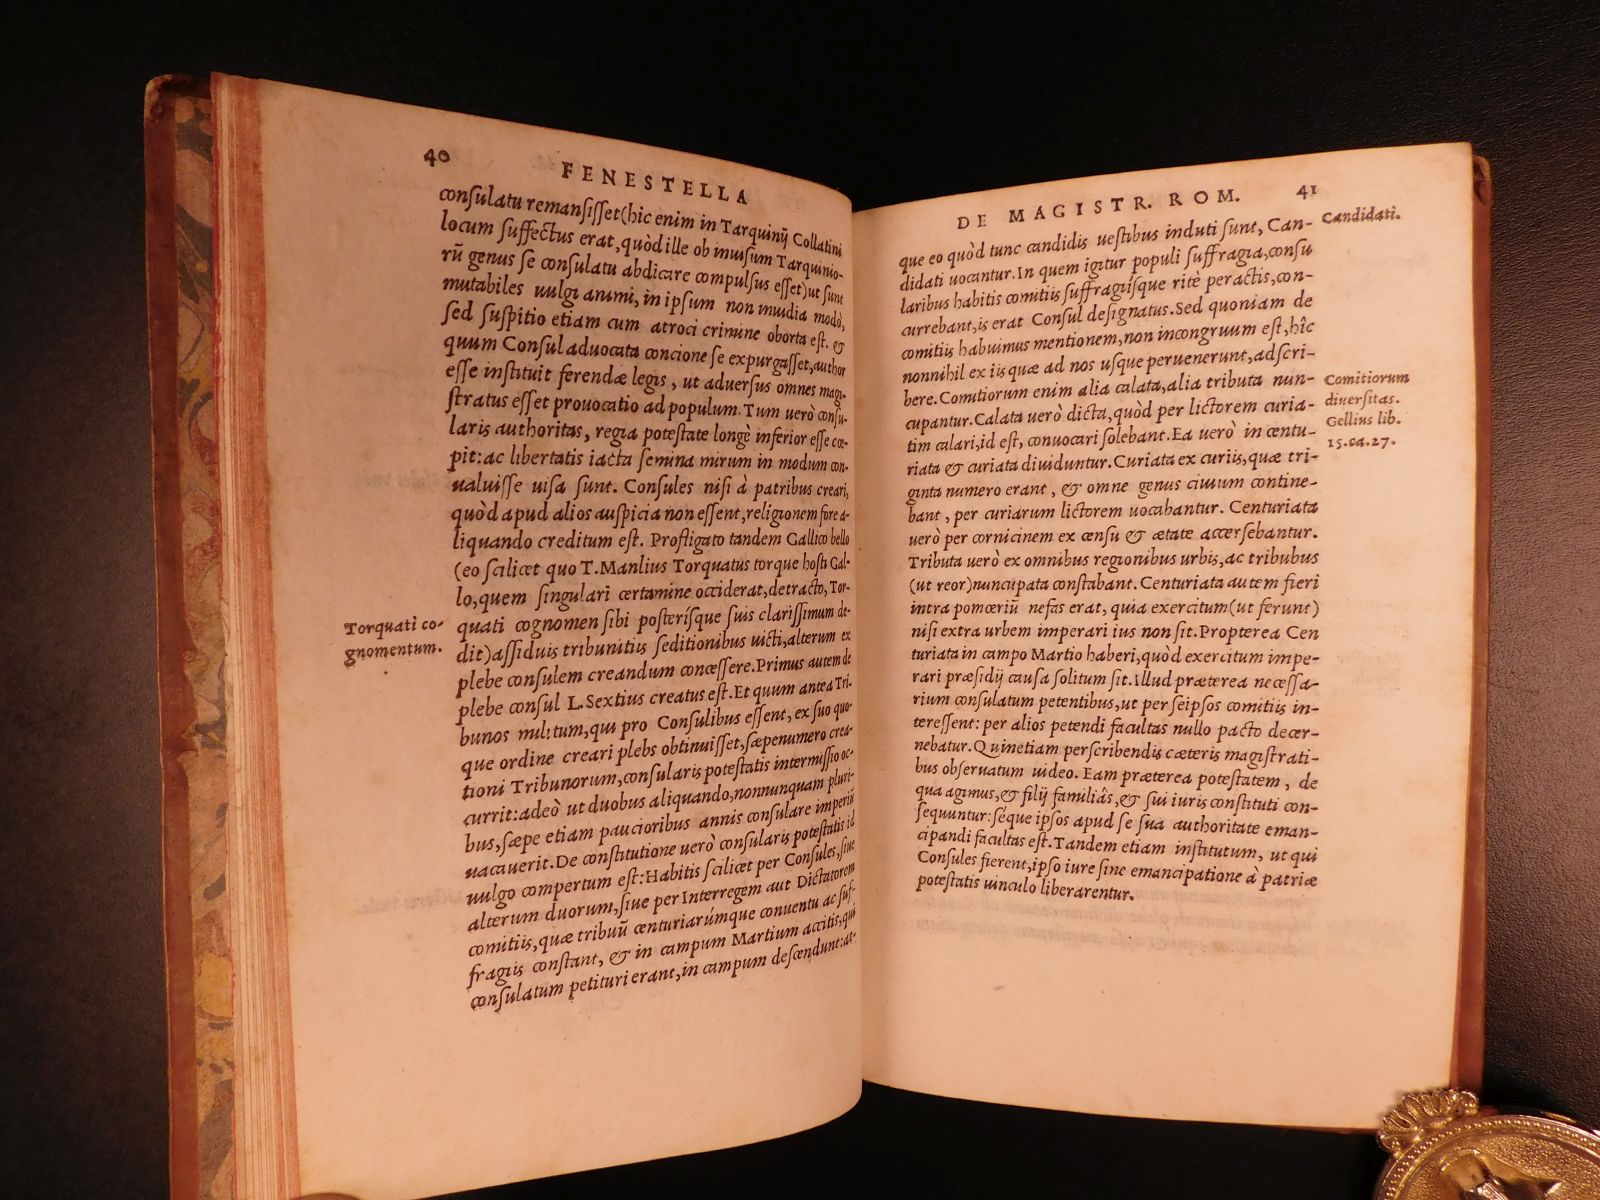 40
FENESTELLA
consulatu remansisset (hic enim in Tarquinij Collatini
locum suffectus erat, quòd ille ob inuisum Tarquinio-
rū genus se consulatu abdicare compulsus esset) ut sunt
mutabiles uulgi animi, in ipsum non inuidia modò,
sed suspitio etiam cum atroci crimine oborta est. &
quum Consul aduocata concione se expurgasset, author
esse instituit ferendæ legis, ut aduersus omnes magi-
stratus esset prouocatio ad populum. Tum uerò consu-
laris authoritas, regia potestate longè inferior esse cœ-
pit: ac libertatis iacta semina mirum in modum con-
ualuisse uisa sunt. Consules nisi à patribus creari,
quòd apud alios auspicia non essent, religionem fore a-
liquando creditum est. Profligato tandem Gallico bello
(eo scilicet quo T. Manlius Torquatus torque hosti Gal-
lo, quem singulari certamine occiderat, detracto, Tor-
quati cognomen sibi posterísque suis clarissimum de-
dit) assiduis tribunitijs seditionibus uicti, alterum ex
plebe consulem creandum concessere. Primus autem de
plebe consul L. Sextius creatus est. Et quum antea Tri-
bunos militum, qui pro Consulibus essent, ex suo quo-
que ordine creari plebs obtinuisset, sæpenumero crea-
tioni Tribunorum, consularis potestatis intermissio oc-
currit: adeò ut duobus aliquando, nonnunquam pluri-
bus, sæpe etiam paucioribus annis consulare imperiū
uacauerit. De constitutione uerò consularis potestatis id
uulgo compertum est: Habitis scilicet per Consules, siue
alterum duorum, siue per Interregem aut Dictatorem
comitijs, quæ tribuū centuriarúmque conuentu ac suf-
fragijs constant, & in campum Martium accitis, qui
consulatum petituri erant, in campum descendunt: at-
Torquati co-
gnomentum.
DE MAGISTR. ROM.
41
que eo quòd tunc candidis uestibus induti sunt, Can-
didati uocantur. In quem igitur populi suffragia, consu
laribus habitis comitijs suffragijsque ritè peractis, con-
currebant, is erat Consul designatus. Sed quoniam de
comitijs habuimus mentionem, non incongruum est, hîc
nonnihil ex iis quæ ad nos usque peruenerunt, adscri-
bere. Comitiorum enim alia calata, alia tributa nun-
cupantur. Calata uerò dicta, quòd per lictorem curia-
tim calari, id est, conuocari solebant. Ea uerò in centu-
riata & curiata diuiduntur. Curiata ex curijs, quæ tri-
ginta numero erant, & omne genus ciuium contine-
bant, per curiarum lictorem uocabantur. Centuriata
uerò per cornicinem ex censu & ætate accersebantur.
Tributa uerò ex omnibus regionibus urbis, ac tribubus
(ut reor) nuncupata constabant. Centuriata autem fieri
intra pomœriū nefas erat, quia exercitum (ut ferunt)
nisi extra urbem imperari ius non sit. Propterea Cen
turiata in campo Martio haberi, quòd exercitum impe-
rari præsidij causa solitum sit. Illud præterea necessa-
rium consulatum petentibus, ut per seipsos comitijs in-
teressent: per alios petendi facultas nullo pacto decer-
nebatur. Quinetiam perscribendis cæteris magistrati-
bus obseruatum uideo. Eam præterea potestatem, de
qua agimus, & filij familiâs, & sui iuris constituti con-
sequuntur: séque ipsos apud se sua authoritate eman-
cipandi facultas est. Tandem etiam institutum, ut qui
Consules fierent, ipso iure sine emancipatione à patriæ
potestatis uinculo liberarentur.
Candidati.
Comitiorum
diuersitas.
Gellius lib.
15. ca. 27.